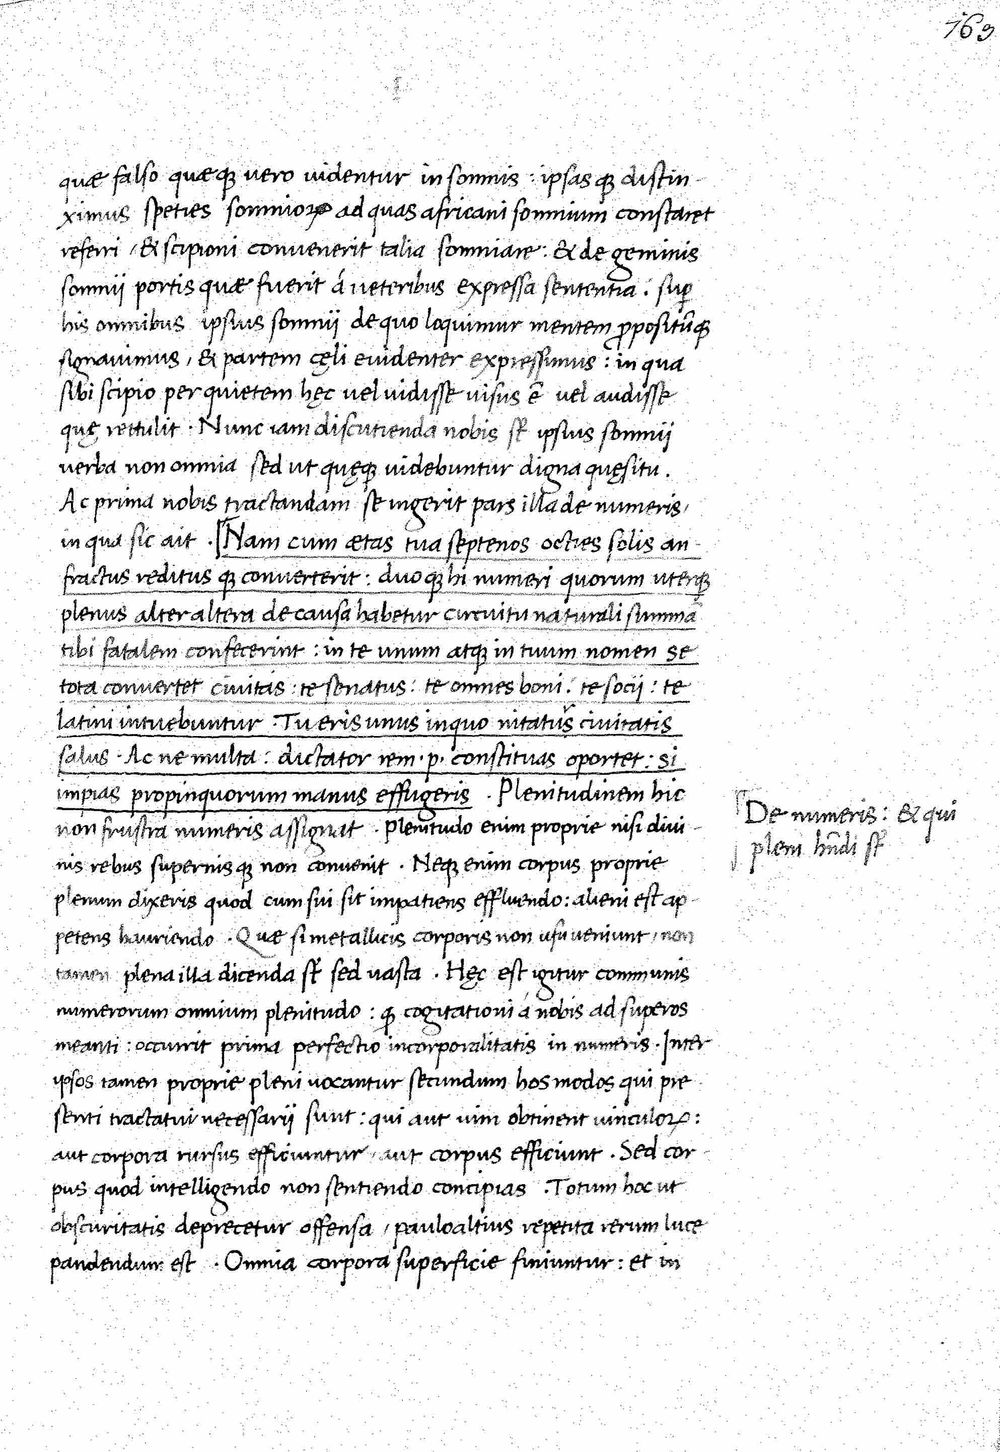 163
quæ falso quæq; vero uidentur in somnis : ipsasq; distin-
ximus speties somnioꝝ ad quas africani somnium constaret
referri / & scipioni convenerit talia somniare : & de geminis
somnii portis quæ fuerit á ueteribus expressa sententia : sup̄
his omnibus ipsius somnij de quo loquimur mentem ꝓpositūq;
signauimus / & partem cęli euidenter expressimus : in qua
sibi scipio per quietem hęc uel uidisse uisus ē uel audisse
quę rettulit . Nunc iam discutienda nobis st̄ ipsius somnij
uerba non omnia sed ut quęq; uidebuntur digna quęsitu .
Ac prima nobis tractandam se ingerit pars illa de numeris /
in qua sic ait . Nam cum ætas tua septenos octies solis an-
fractus reditusq; converterit : duoq; hi numeri quorum uterq;
plenus alter altera de causa habetur circuitu naturali summā
tibi fatalem confecerint : in te unum atq; in tuum nomen se
tota convertet ciuitas : te senatus : te omnes boni : te socij : te
latini intuebuntur . Tu eris unus in quo nitatur ciuitatis
salus . Ac ne multa : dictator rem . p . constituas oportet : si
impias propinquorum manus effugeris . Plenitudinem hic
non frustra numeris assignat . Plenitudo enim proprie nisi diui-
nis rebus supernisq; non convenit . Neq; enim corpus proprie
plenum dixeris quod cum sui sit impatiens effluendo : alieni est ap-
petens hauriendo . Quæ si metallicis corporis non usu ueniunt / non
tamen plena illa dicenda st̄ sed uasta . Hęc est igitur communis
numerorum omnium plenitudo : q; cogitationi á nobis ad superos
meanti : occurrit prima perfectio incorporalitatis in numeris . Inter
ipsos tamen proprie pleni uocantur secundum hos modos qui pre
senti tractatui necessarij sunt : qui aut uim obtinent uinculoꝝ :
aut corpora rursus efficiuntur / aut corpus efficiunt . Sed cor-
pus quod intelligendo non sentiendo concipias . Totum hoc ut
obscuritatis deprecetur offensa / paulo altius repetita rerum luce
pandendum est . Omnia corpora superficie finiuntur : et in
De numeris : & qui
pleni hn̄di st̄